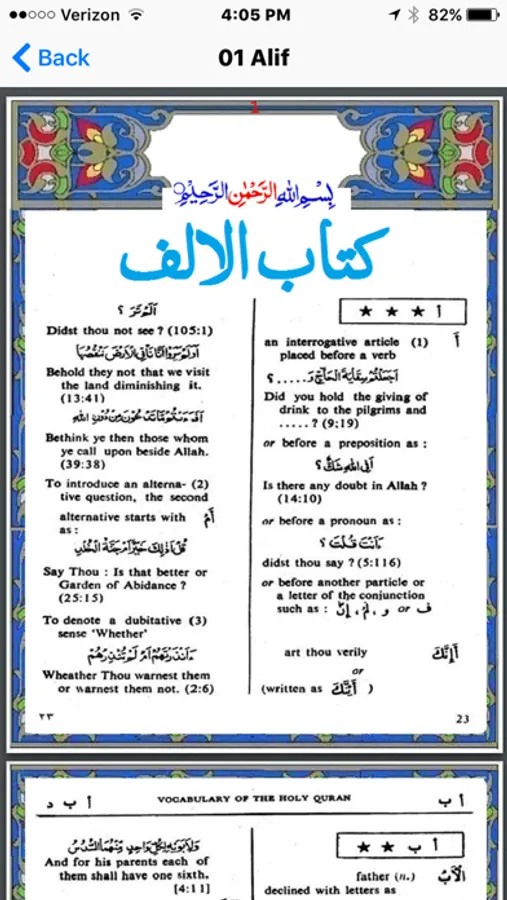 Verizon
4:05 PM
82%
Back
01 Alif
1
بِسْمِ اللهِ الرَّحْمٰنِ الرَّحِيْمِ
كتاب الالف
أ ★ ★ ★
an interrogative article (1) أَ
placed before a verb
اَجَعَلْتُمْ سِقَايَةَ الْحَآجِّ وَ.....؟
Did you hold the giving of
drink to the pilgrims and
.....? (9:19)
or before a preposition as :
اَفِی اللهِ شَكٌّ؟
Is there any doubt in Allah ?
(14:10)
or before a pronoun as :
ءَاَنْتَ قُلْتَ ؟
didst thou say ? (5:116)
or before another particle or
a letter of the conjunction
such as : ف or و ,لَمْ ,اِنَّ
art thou verily أَإِنَّكَ
or
(written as أَئِنَّكَ )
23
اَلَمْ تَرَ ؟
Didst thou not see ? (105:1)
اَوَلَمْ يَرَوْا اَنَّا نَأْتِی الْاَرْضَ نَنْقُصُهَا
Behold they not that we visit
the land diminishing it.
(13:41)
Bethink ye then those whom
ye call upon beside Allah.
(39:38)
To introduce an alterna- (2)
tive question, the second
alternative starts with أَمْ
as :
قُلْ اَذٰلِكَ خَيْرٌ اَمْ جَنَّةُ الْخُلْدِ
Say Thou : Is that better or
Garden of Abidance ?
(25:15)
To denote a dubitative (3)
sense ‘Whether’
ءَاَنْذَرْتَهُمْ اَمْ لَمْ تُنْذِرْهُمْ
Wheather Thou warnest them
or warnest them not. (2:6)
٢٣
أ ب د
VOCABULARY OF THE HOLY QURAN
أ ب
أ ب ★ ★
father (n.) الْأَبُ
declined with letters as
وَلِاَبَوَيْهِ لِكُلِّ وَاحِدٍ مِّنْهُمَا السُّدُسُ
And for his parents each of
them shall have one sixth.
[4:11]